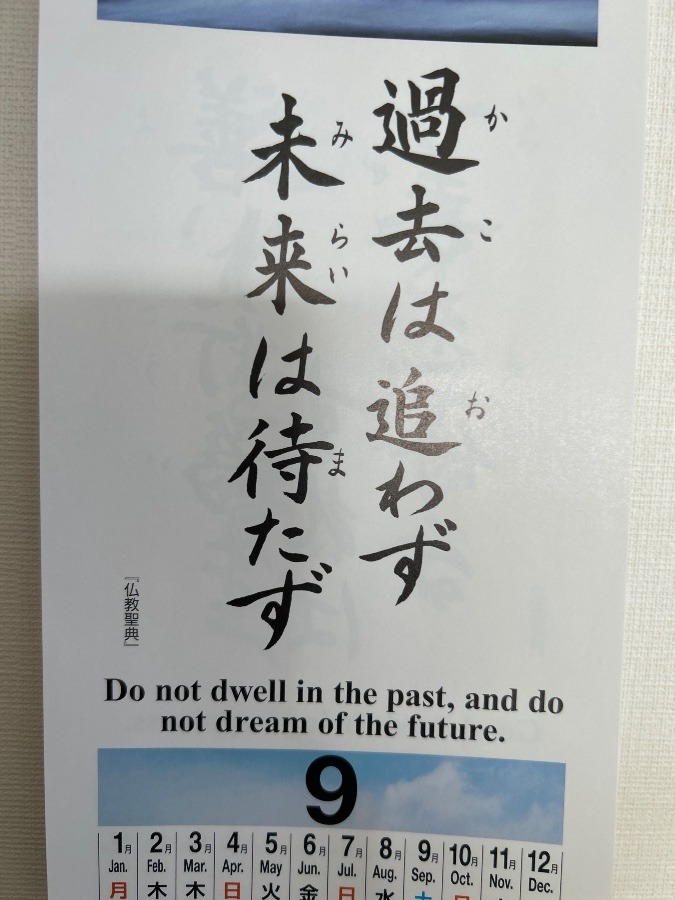 過去は追わず
かこ お
未来は待たず
みらい ま
『仏教聖典』
Do not dwell in the past, and do
not dream of the future.
9
1月 2月 3月 4月 5月 6月 7月 8月 9月 10月 11月 12月
Jan. Feb. Mar. Apr. May Jun. Jul. Aug. Sep. Oct. Nov. Dec.
月 木 木 日 火 金 日 水 土